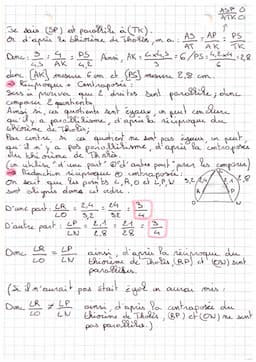 ASP O
ATK O
Je sais (SP) est parallèle à (TK).
Or d'après le théorème de Thalès, on a : AS/AT = AP/AK = PS/TK
Donc : 3/4,5 = 4/AK = PS/4,2 Ainsi, AK = 4×4,5/3 = 6 / PS = 4,2×4/6 = 2,8
donc [AK] mesure 6 cm et [PS] mesure 2,8 cm.
→ Réciproque + Contraposée :
Sers à prouver que 2 droites sont parallèles ; donc
comparer 2 quotients,
Ainsi si, ces quotients sont égaux, on peut conclure
qu'il y a parallélisme, d'après la réciproque du
théorème de Thalès,
Par contre si ces quotient ne sont pas égaux, on peut
qu'il n'y a pas parallélisme, d'après la contraposée
du théorème de Thalès.
(on utilise "d'une part" et "d'autre part" pour les comparer)
→ Rédaction réciproque contraposée :
On sait que les points L, R, O et L, P, N
sont alignés dans cet ordre.
D'une part : LR/LO = 2,4/3,2 = 24/32 = 3/4
D'autre part : LP/LN = 2,1/2,8 = 21/28 = 3/4
Donc LR/LO = LP/LN ainsi, d'après la réciproque du
théorème de Thalès, (RP) et (ON) sont
parallèles.
(Si il n'aurait pas était égal on aurai mis :
Donc LR/LO ≠ LP/LN ainsi d'après la contraposée du
théorème de Thalès, (RP) et (ON) ne sont
pas parallèles.)